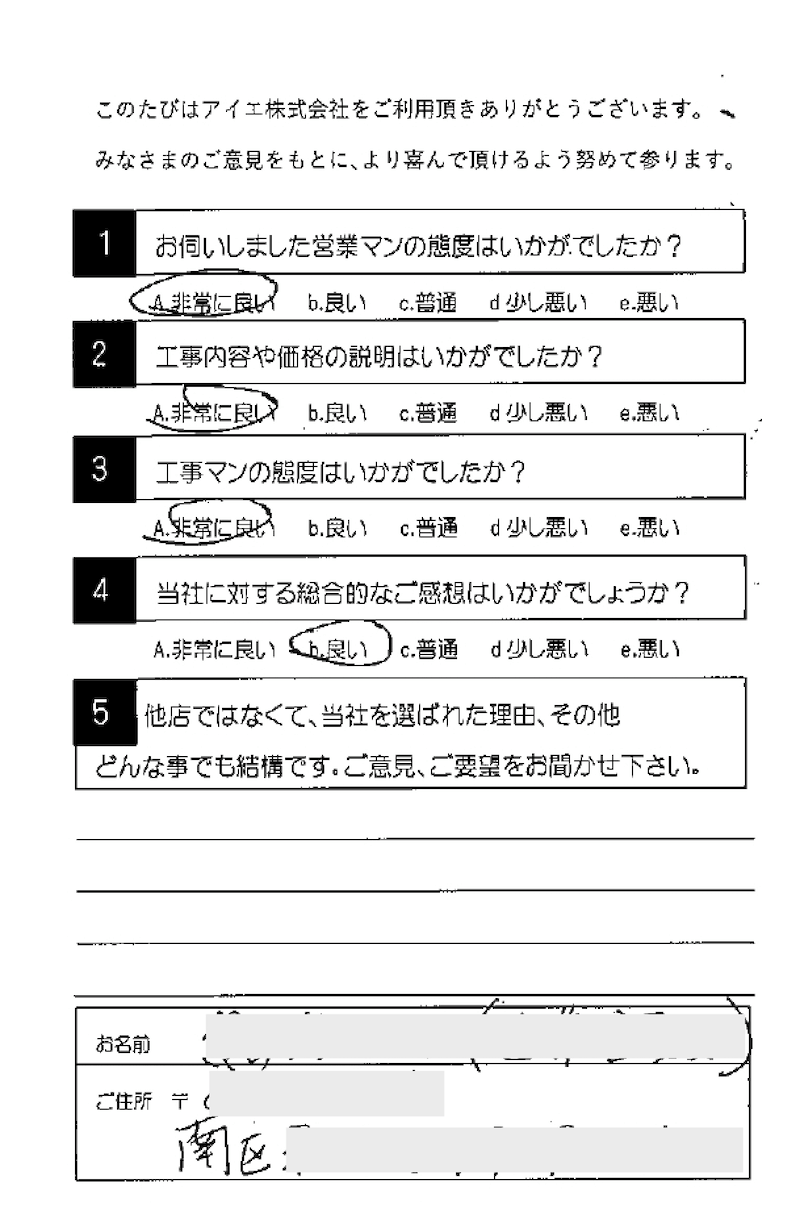 このたびはアイエ株式会社をご利用頂きありがとうございます。
みなさまのご意見をもとに、より喜んで頂けるよう努めて参ります。
1 お伺いしました営業マンの態度はいかがでしたか？
A.非常に良い b.良い c.普通 d 少し悪い e.悪い
2 工事内容や価格の説明はいかがでしたか？
A.非常に良い b.良い c.普通 d 少し悪い e.悪い
3 工事マンの態度はいかがでしたか？
A.非常に良い b.良い c.普通 d 少し悪い e.悪い
4 当社に対する総合的なご感想はいかがでしょうか？
A.非常に良い b.良い c.普通 d 少し悪い e.悪い
5 他店ではなくて、当社を選ばれた理由、その他
どんな事でも結構です。ご意見、ご要望をお聞かせ下さい。
お名前
ご住所 〒
南区